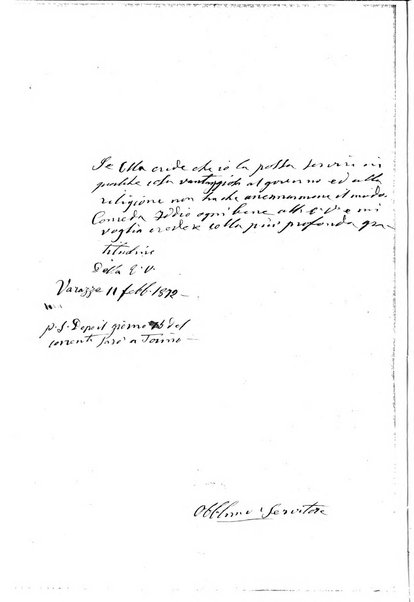 Se Ella crede che io la possa servire in
qualche cosa vantaggiosa al governo ed alla
religione non ha che accennarmene il modo.
Conceda Iddio ogni bene all' E. V. e mi
voglia credere colla più profonda gra-
titudine
Della E. V.
Varazze 11 febb. 1872
P. S. Dopo il giorno 15 del
corrente sarò a Torino
Obbl.mo Servitore